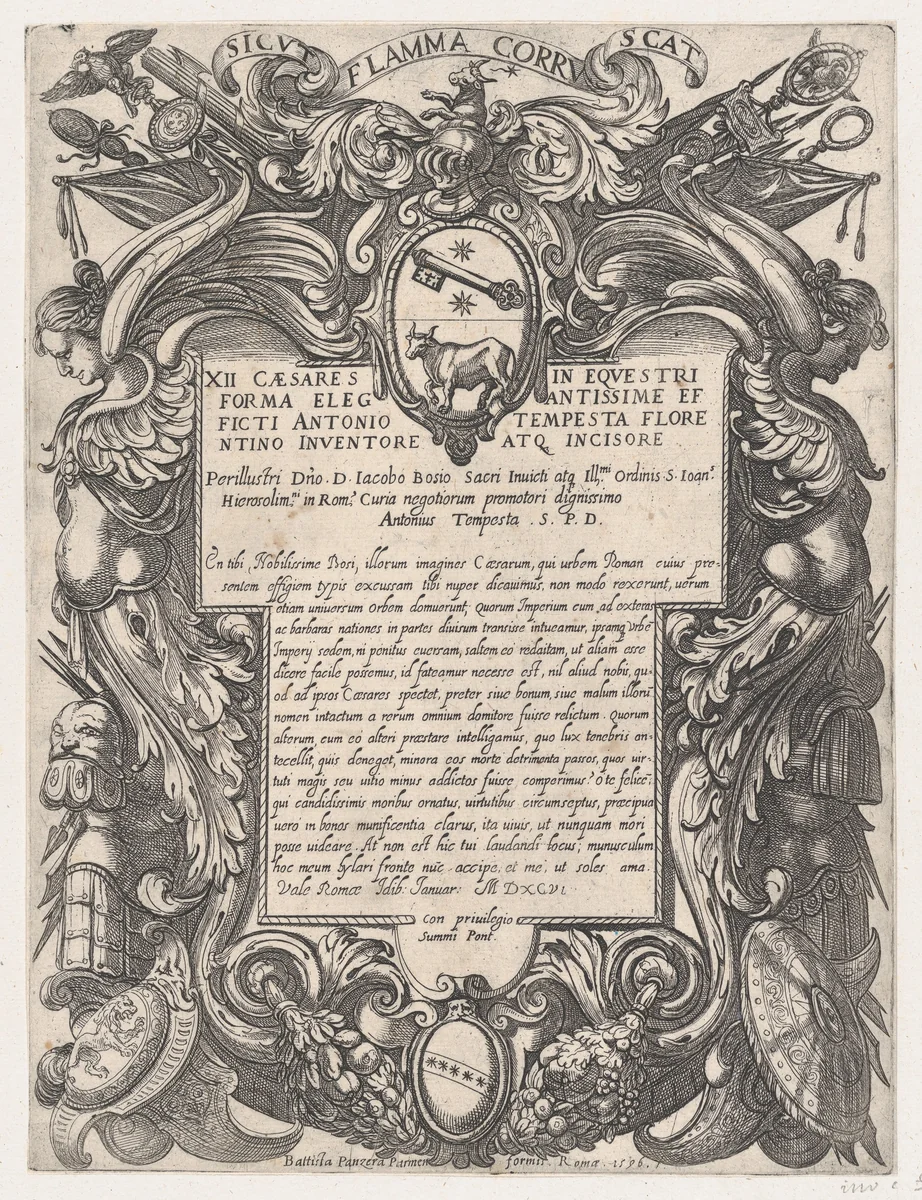 SICVT FLAMMA CORRVSCAT
XII CÆSARES IN EQVESTRI
FORMA ELEGANTISSIME EF
FICTI ANTONIO TEMPESTA FLORE
NTINO INVENTORE ATQ INCISORE
Perillustri Dño. D. Iacobo Bosio Sacri Inuicti atq Ill.mi Ordinis S. Ioan.s
Hierosolim.ni in Rom.a Curia negotiorum promotori dignissimo
Antonius Tempesta . S. P. D.
En tibi, Nobilissime Bosi, illorum imagines Cæsarum, qui urbem Roman cuius pre-
sentem effigiem typis excussam tibi nuper dicauimus, non modo rexerunt, uerum
etiam uniuersum Orbem domuerunt, Quorum Imperium cum ad exteras
ac barbaras nationes in partes diuisum transisse intueamur, ipsamq Vrbẽ
Imperij sedem, ni penitus euersam, saltem eò redaitam, ut aliam esse
dicere facile possemus, id fateamur necesse est, nil aliud nobis, qu-
od ad ipsos Cæsares spectet, preter siue bonum, siue malum illorũ
nomen intactum a rerum omnium domitore fuisse relictum. Quorum
alterum, cum eò alteri præstare intelligamus, quo lux tenebris an-
tecellit, quis deneget, minora eos morte detrimenta passos, quos uir-
tuti magis seu uitio minus addictos fuisse comperimus? ò te felicẽ,
qui candidissimis moribus ornatus, uirtutibus circumseptus, præcipua
uero in bonos munificentia clarus, ita uiuis, ut nunquam mori
posse uideare. At non est hic tui laudandi locus; munusculum
hoc meum hylari fronte nũc accipe, et me, ut soles ama.
Vale Romæ Idib. Ianuar: M DXCVI
Con priuilegio
Summi Pont.
Battista Panzera Parmen formis Romæ 1596.